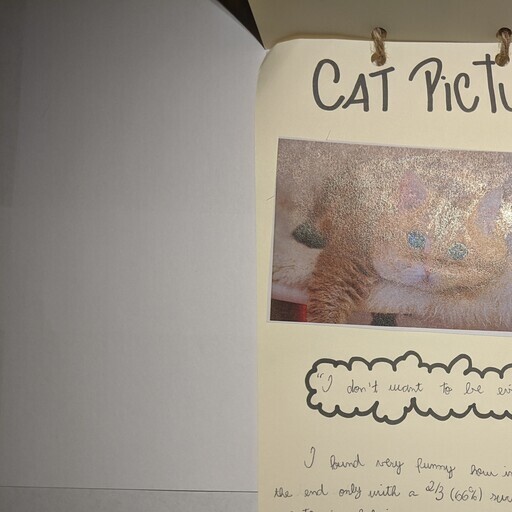 CAT PICTU
"I don't want to be evi
I found very funny how in
the end only with a 2/3 (66%) sur